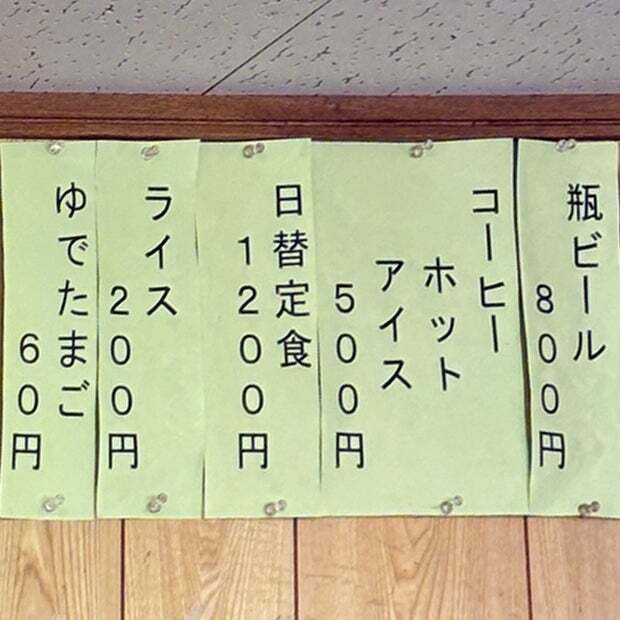 瓶ビール
800円
コーヒー
ホット
アイス
500円
日替定食
1200円
ライス
200円
ゆでたまご
60円